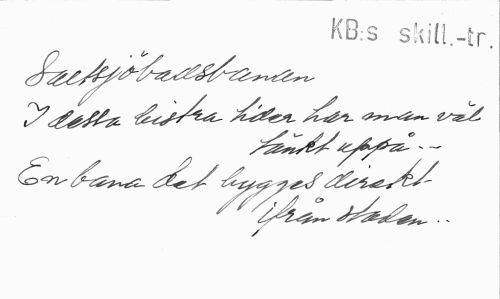 KB:s skill.-tr.
Saltsjöbadsbanan
I dessa bistra tider har man väl
tänkt uppå --
En bana det bygges direkt
ifrån staden --